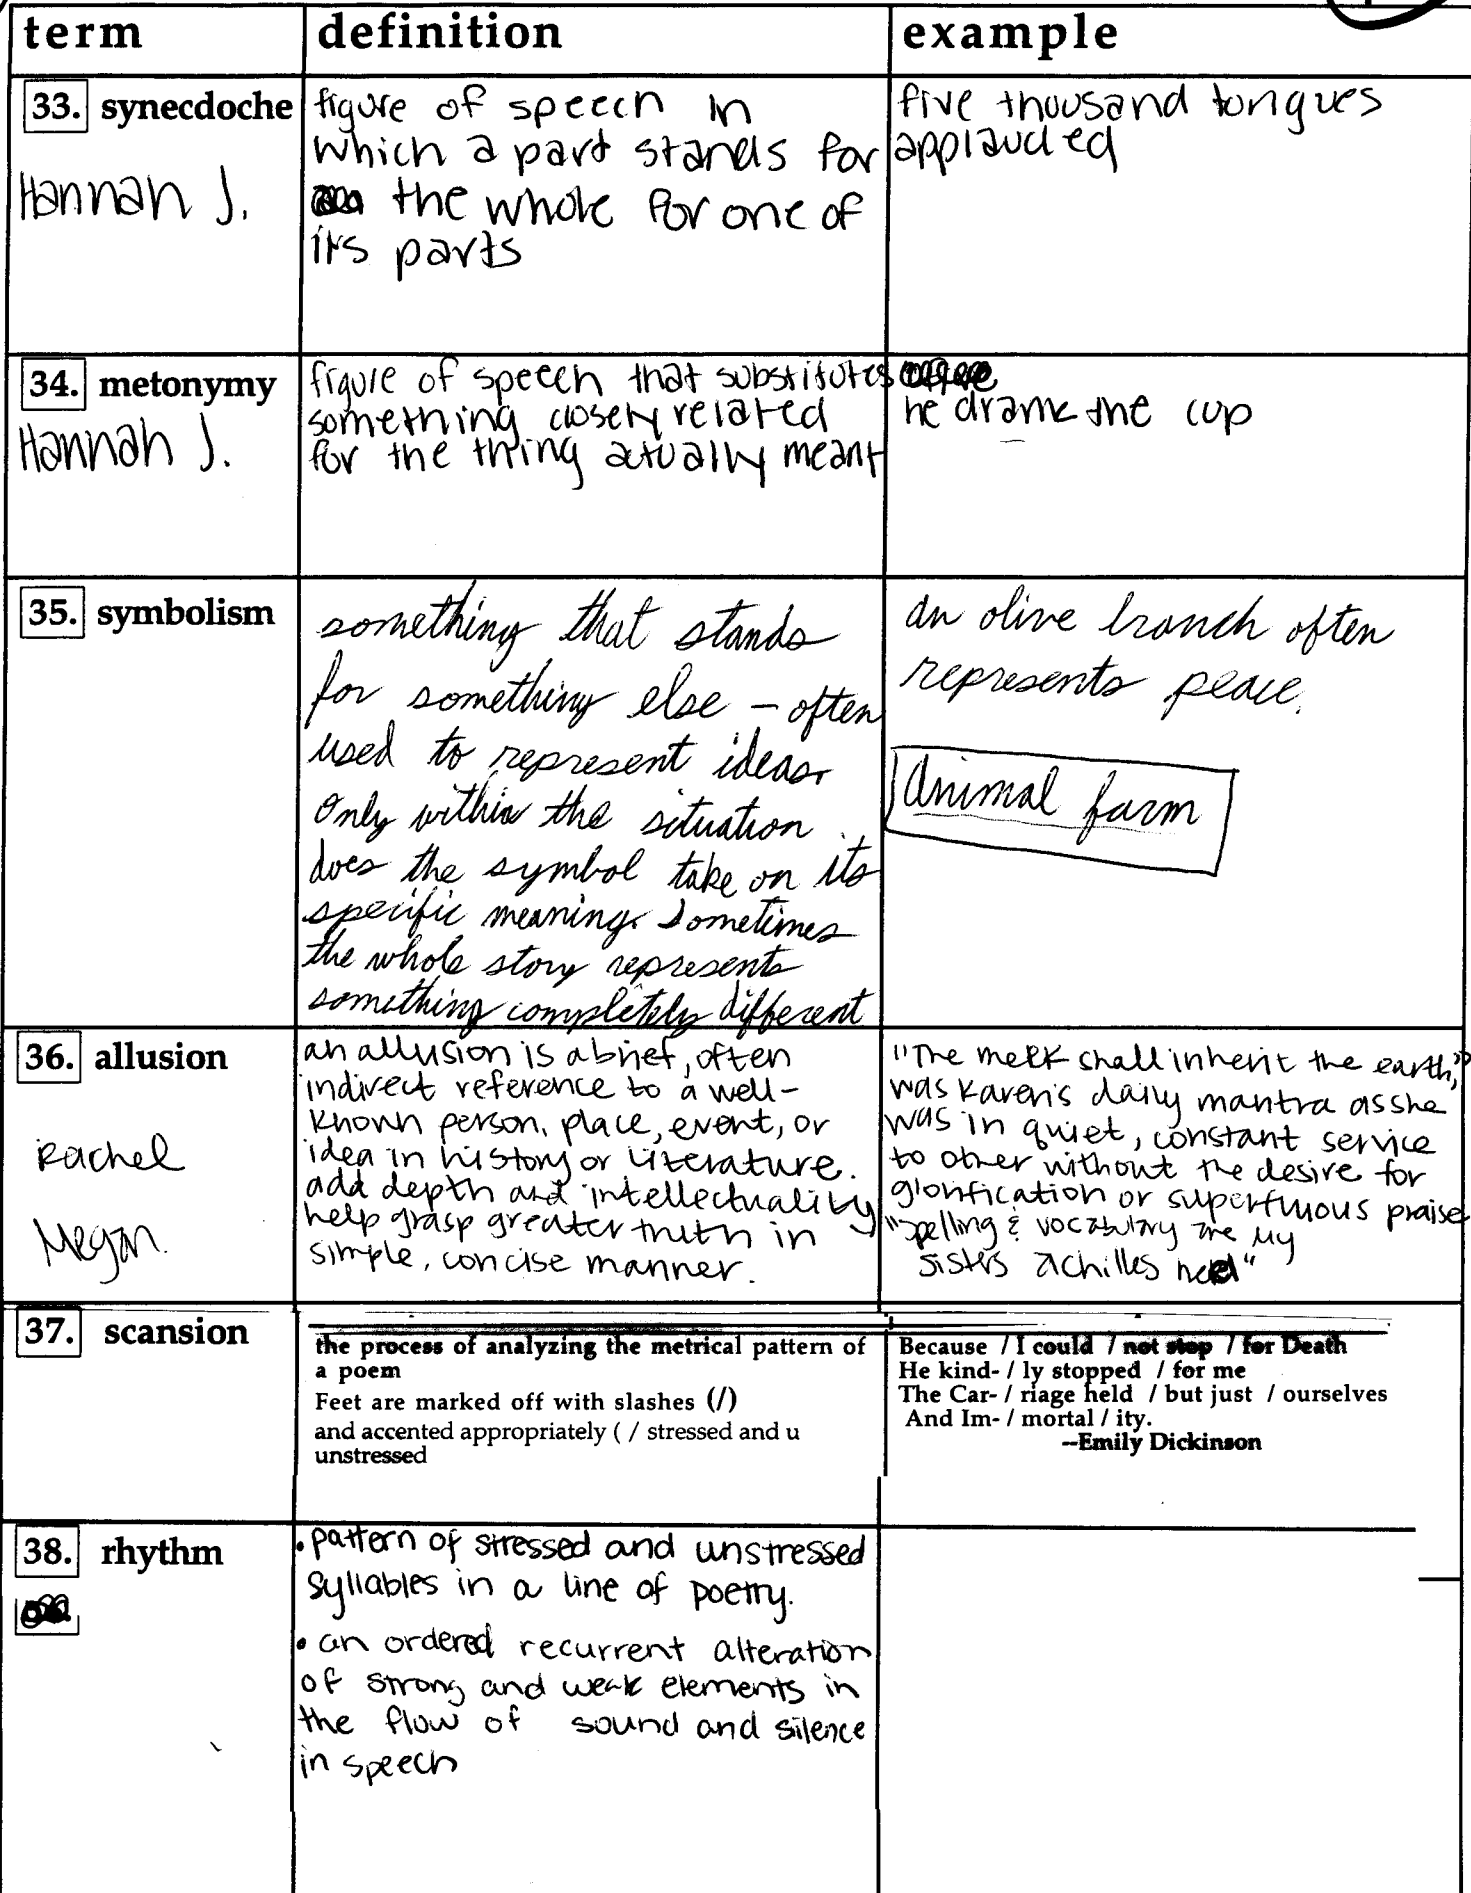 term definition example
33. synecdoche
Hannah J.
figure of speech in
which a part stands for
the whole for one of
its parts
five thousand tongues
applauded
34. metonymy
Hannah J.
figure of speech that substitutes
something closely related
for the thing actually meant
he drank the cup
35. symbolism
something that stands
for something else – often
used to represent ideas.
Only within the situation
does the symbol take on its
specific meaning. Sometimes
the whole story represents
something completely different
an olive branch often
represents peace.
Animal farm
36. allusion
Rachel
Megan.
an allusion is a brief, often
indirect reference to a well-
known person, place, event, or
idea in history or literature.
add depth and intellectuality
help grasp greater truth in
simple, concise manner.
"The meek shall inherit the earth,"
was Karen's daily mantra as she
was in quiet, constant service
to other without the desire for
glorification or superfluous praise
"spelling & vocabulary are my
sisters achilles heel"
37. scansion
the process of analyzing the metrical pattern of
a poem
Feet are marked off with slashes (/)
and accented appropriately ( / stressed and u
unstressed
Because / I could / not stop / for Death
He kind- / ly stopped / for me
The Car- / riage held / but just / ourselves
And Im- / mortal / ity.
--Emily Dickinson
38. rhythm
• pattern of stressed and unstressed
syllables in a line of poetry.
• an ordered recurrent alteration
of strong and weak elements in
the flow of sound and silence
in speech